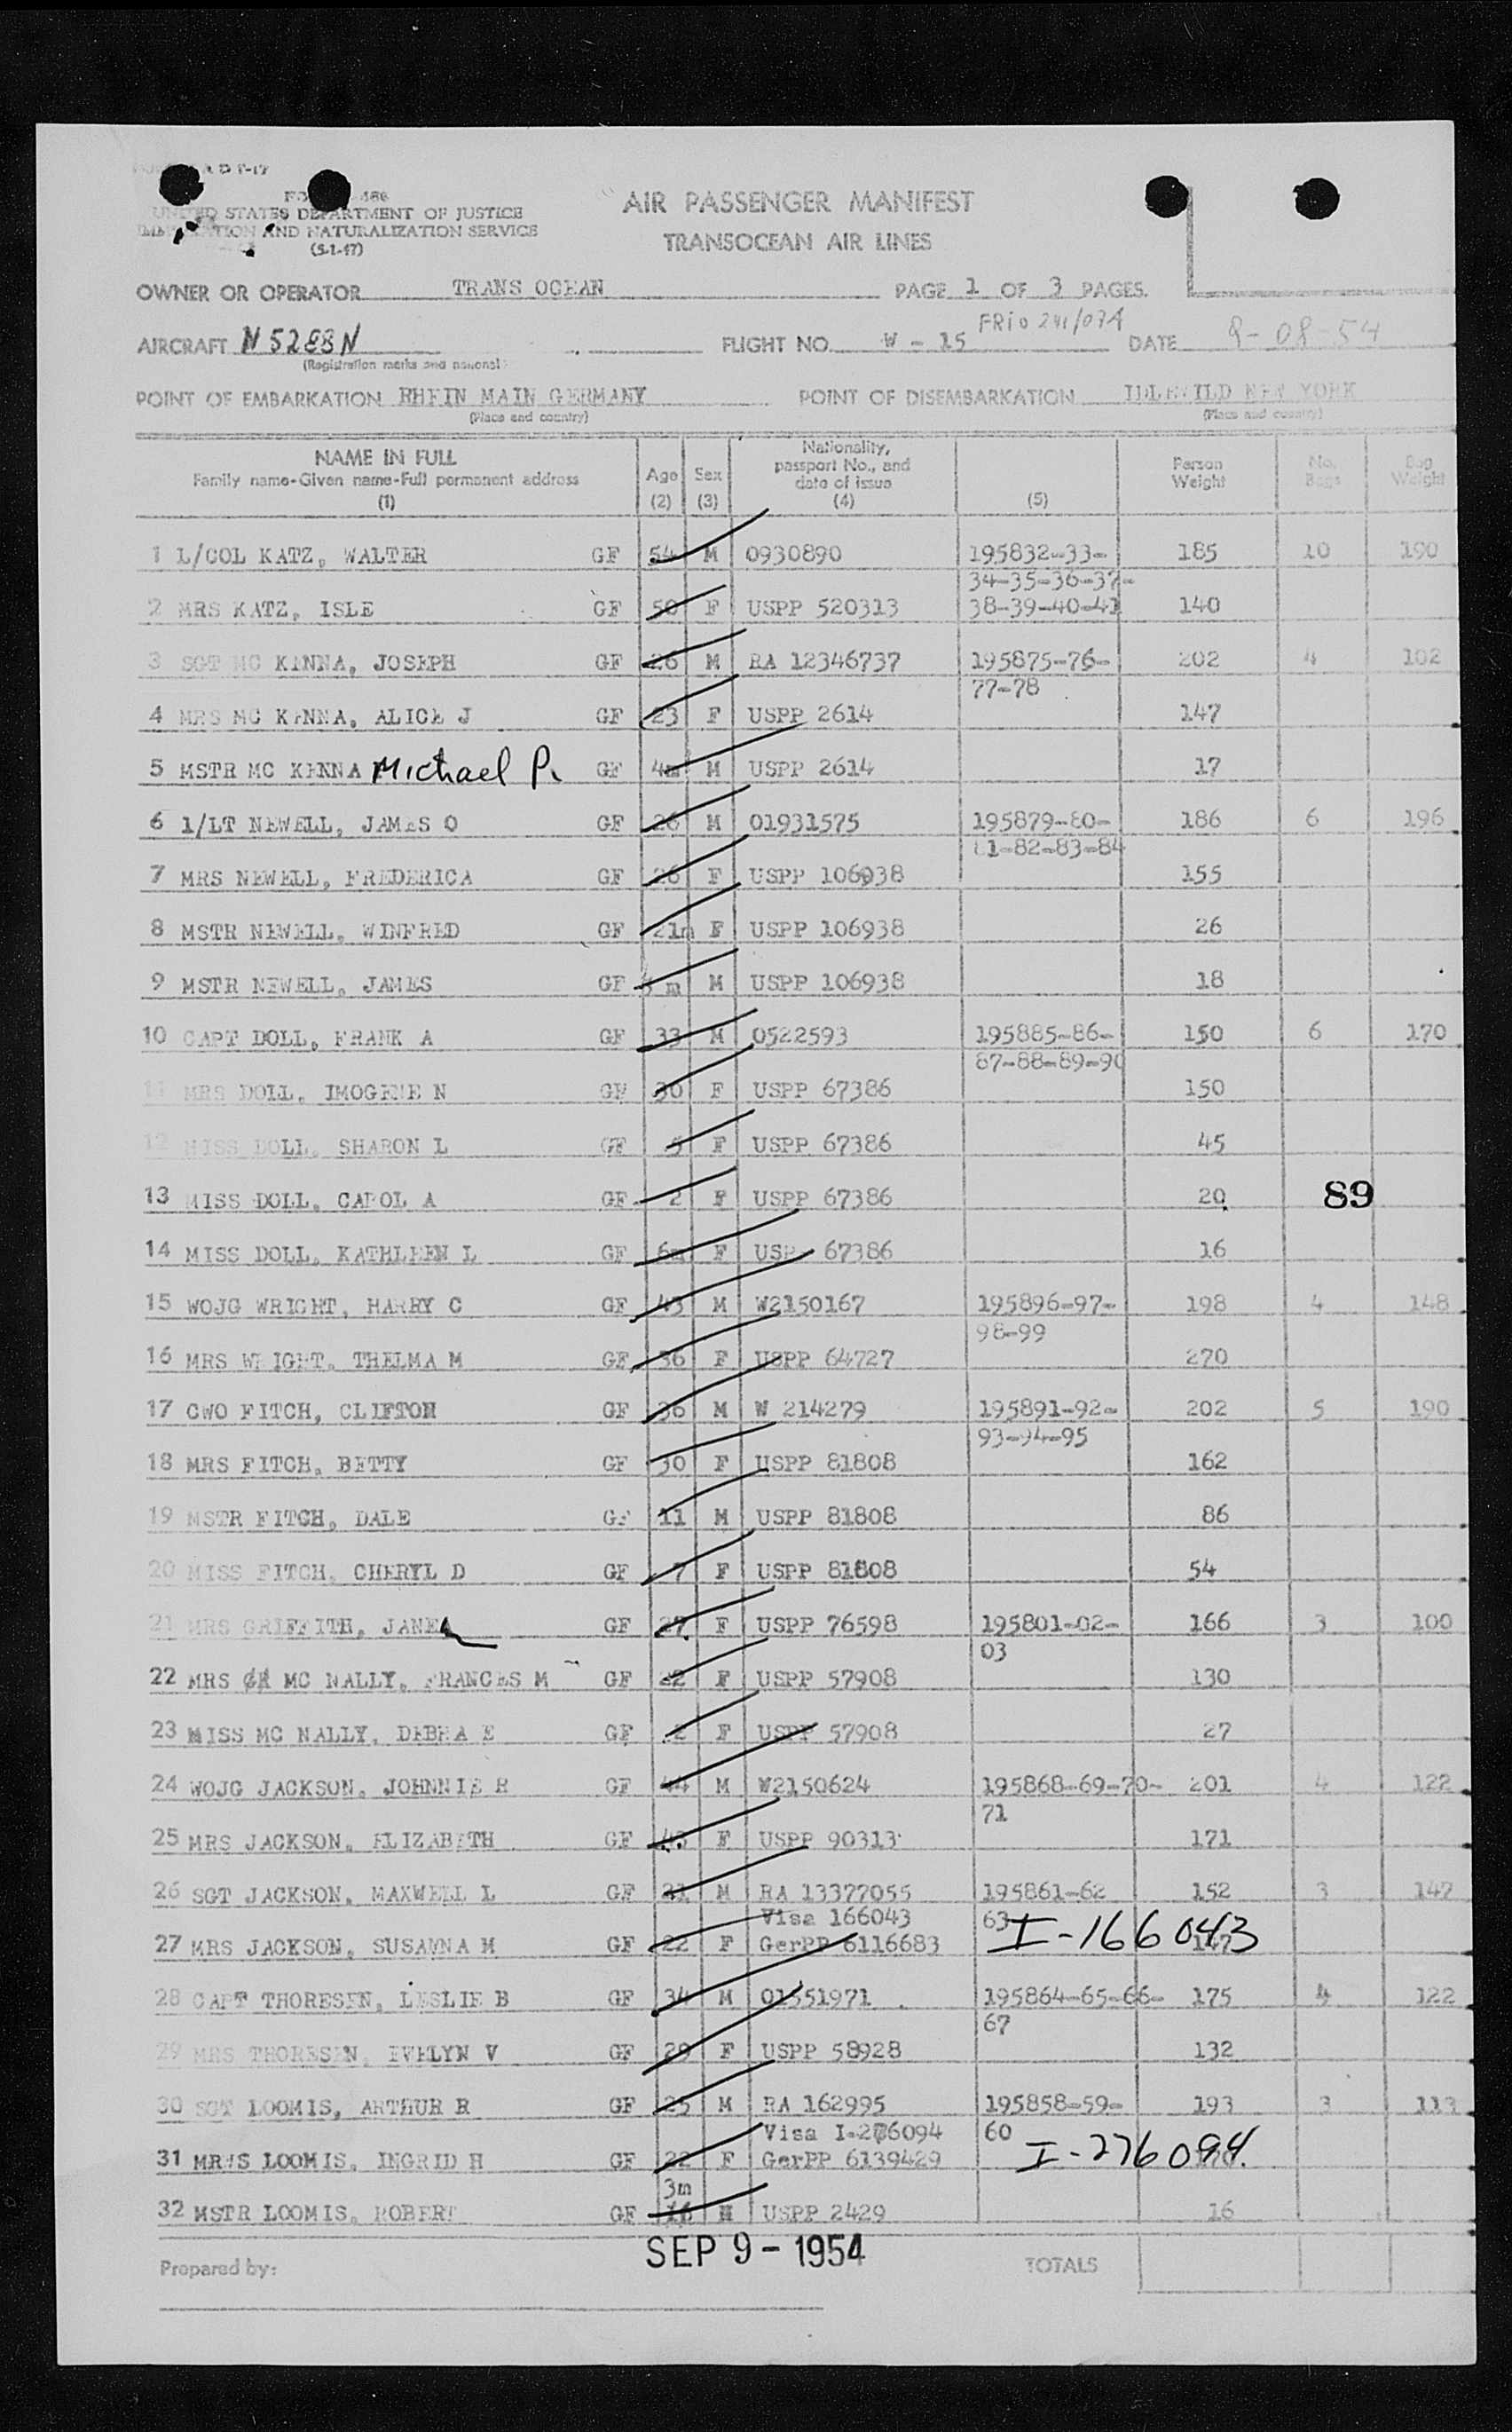 UNITED STATES DEPARTMENT OF JUSTICE
AND NATURALIZATION SERVICE
(5-1-47)
AIR PASSENGER MANIFEST
TRANSOCEAN AIR LINES
OWNER OR OPERATOR TRANS OCEAN PAGE 1 OF 3 PAGES.
AIRCRAFT FLIGHT NO. W - 15 DATE
(Registration marks and national)
POINT OF EMBARKATION RHEIN MAIN GERMANY POINT OF DISEMBARKATION IDLEWILD NEW YORK
(Place and country) (Place and country)
NAME IN FULL
Family name-Given name-Full permanent address
(1)
Age
(2)
Sex
(3)
Nationality,
passport No., and
date of issue
(4)
(5)
Person
Weight
No.
Bags
Bag
Weight
1 L/COL KATZ, WALTER GF 54 M 0930890 195832-33- 185 10 190
34-35-36-37-
2 MRS KATZ, ISLE GF 50 F USPP 520313 38-39-40-41 140
3 SGT MC KENNA, JOSEPH GF 26 M RA 12346737 195875-76- 202 4 102
77-78
4 MRS MC KENNA, ALICE J GF 23 F USPP 2614 147
5 MSTR MC KENNA Michael P. GF 4m M USPP 2614 17
6 1/LT NEWELL, JAMES O GF 26 M 01931575 195879-80- 186 6 196
81-82-83-84
7 MRS NEWELL, FREDERICA GF 26 F USPP 106938 155
8 MSTR NEWELL, WINFRED GF 21m F USPP 106938 26
9 MSTR NEWELL, JAMES GF m M USPP 106938 18
10 CAPT DOLL, FRANK A GF 33 M 0522593 195885-86- 150 6 170
87-88-89-90
11 MRS DOLL, IMOGENE N GF 30 F USPP 67386 150
12 MISS DOLL, SHARON L GF 5 F USPP 67386 45
13 MISS DOLL, CAROL A GF 2 F USPP 67386 20 89
14 MISS DOLL, KATHLEEN L GF 6m F USPP 67386 16
15 WOJG WRIGHT, HARRY C GF 43 M W2150167 195896-97- 198 4 148
98-99
16 MRS WRIGHT, THELMA M GF 36 F USPP 64727 270
17 CWO FITCH, CLIFTON GF 36 M W 214279 195891-92- 202 5 190
93-94-95
18 MRS FITCH, BETTY GF 30 F USPP 81808 162
19 MSTR FITCH, DALE GF 11 M USPP 81808 86
20 MISS FITCH, CHERYL D GF 7 F USPP 81808 54
21 MRS GRIFFITH, JANE GF 27 F USPP 76598 195801-02- 166 3 100
03
22 MRS MC NALLY, FRANCES M GF 22 F USPP 57908 130
23 MISS MC NALLY, DEBRA E GF 2 F USPP 57908 27
24 WOJG JACKSON, JOHNNIE R GF 44 M W2150624 195868-69-70- 201 4 122
71
25 MRS JACKSON, ELIZABETH GF 43 F USPP 90313 171
26 SGT JACKSON, MAXWELL L GF 21 M RA 13377055 195861-62 152 3 147
Visa 166043 63
27 MRS JACKSON, SUSANNA M GF 22 F GerPP 6116683 I-166043
28 CAPT THORESEN, LESLIE B GF 34 M 01551971 195864-65-66- 175 4 122
67
29 MRS THORESEN, EVELYN V GF 29 F USPP 58928 132
30 SGT LOOMIS, ARTHUR R GF 25 M RA 162995 195858-59- 193 3 113
Visa I-276094 60
31 MRS LOOMIS, INGRID H GF 22 F GerPP 6139429 I-276094
3m
32 MSTR LOOMIS, ROBERT GF M USPP 2429 16
SEP 9 - 1954
Prepared by: TOTALS